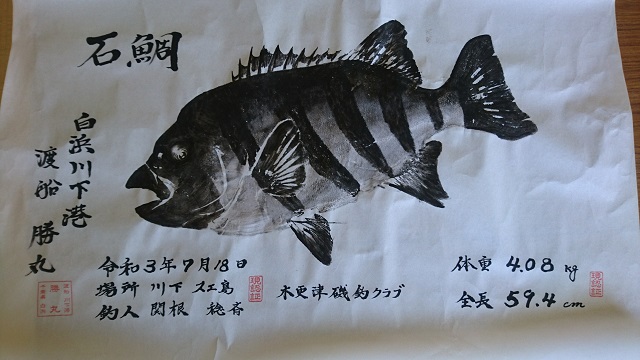 石鯛
白浜川下港
渡船 勝丸
令和3年7月18日
場所 川下 スエ島
釣人 関根
木更津磯釣クラブ
体重 4.08 kg
全長 59.4 cm
現認証
現認証
勝丸